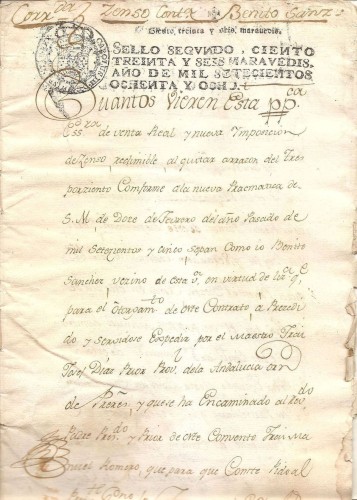 Corr.da Zenso Contra Benito Sanz
Ciento, treinta y seis maravedis.
SELLO SEGVNDO, CIENTO
TREINTA Y SEIS MARAVEDIS,
AÑO DE MIL SETECIENTOS
OCHENTA Y OCHO.
Quantos Vieren Esta pp.ca
Ess.ra de venta Real y nueva Ymposicion
de Zenso redimible al quitar arrazon del Tres
porziento Comforme ala nueva Pracmatica de
S. M. de Doze de Febrero del año Pasado de
mil Setezientos y cinco sepan Como io Benito
Sanchez vezino de esta v.ª en virtud de liz.ª q.e
para el Otorgam.to de este Contrato à Prezedi
do y servidose Expedir por el Maestro Frai
Josef Dias Prior Prov.l dela Andalucia orn
de y quese ha Encaminado al Rev.do
Padre y Prior de este Convento Frai Ma
nuel Romero, que para que Conste Ridel